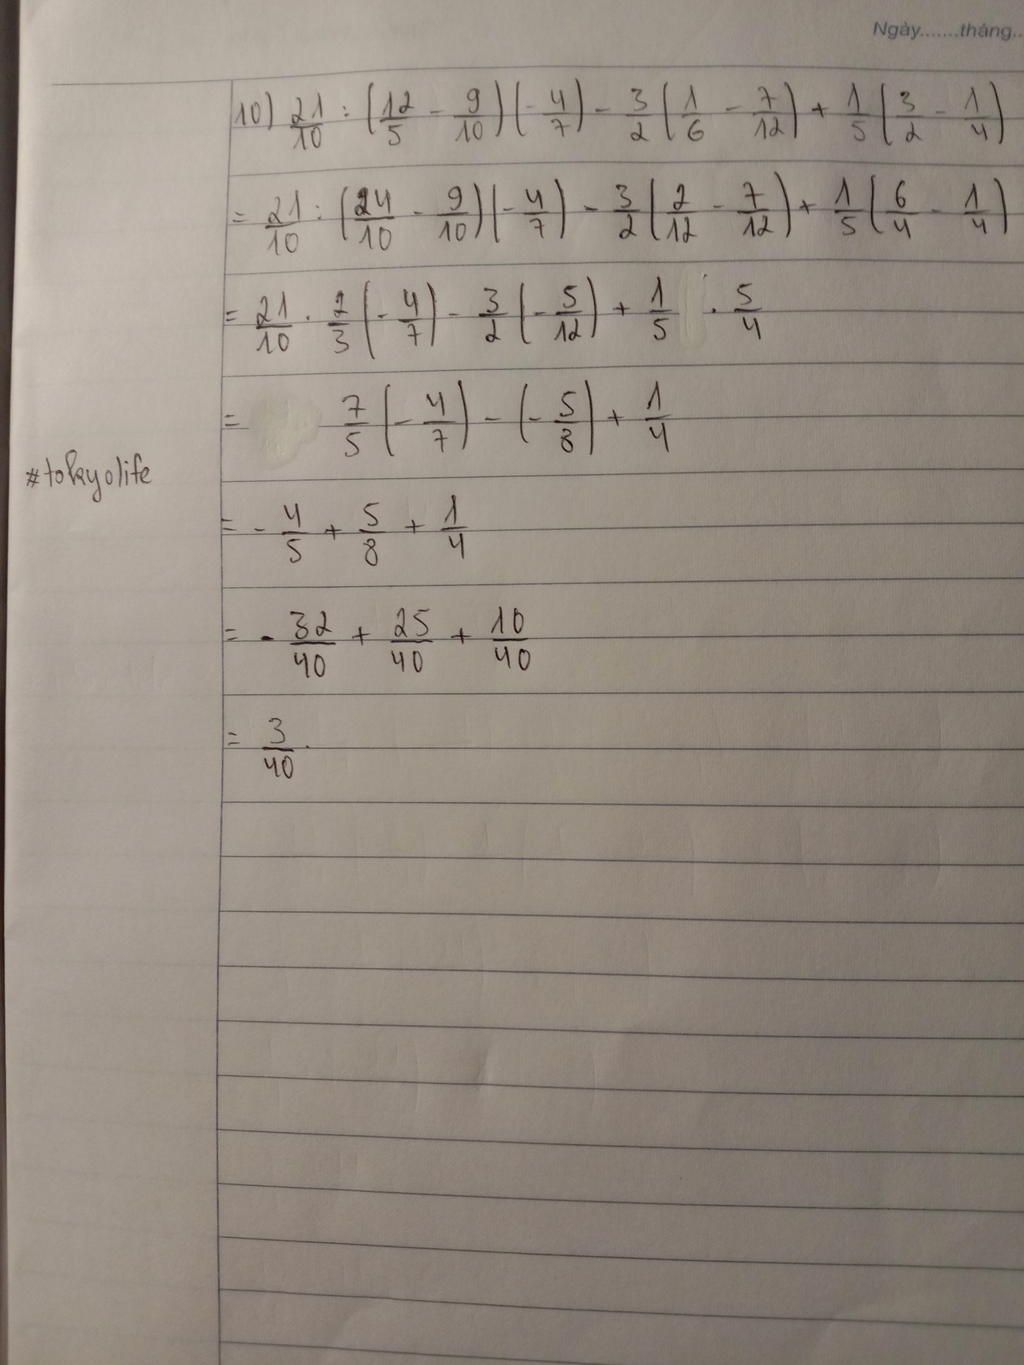 Ngày.......tháng..
10) 21/10 : (12/5 - 9/10)(-4/7) - 3/2(1/6 - 7/12) + 1/5(3/2 - 1/4)
= 21/10 : (24/10 - 9/10)(-4/7) - 3/2(2/12 - 7/12) + 1/5(6/4 - 1/4)
= 21/10 . 2/3(-4/7) - 3/2(-5/12) + 1/5 . 5/4
= 7/5(-4/7) - (-5/8) + 1/4
#tokyolife
= -4/5 + 5/8 + 1/4
= -32/40 + 25/40 + 10/40
= 3/40.